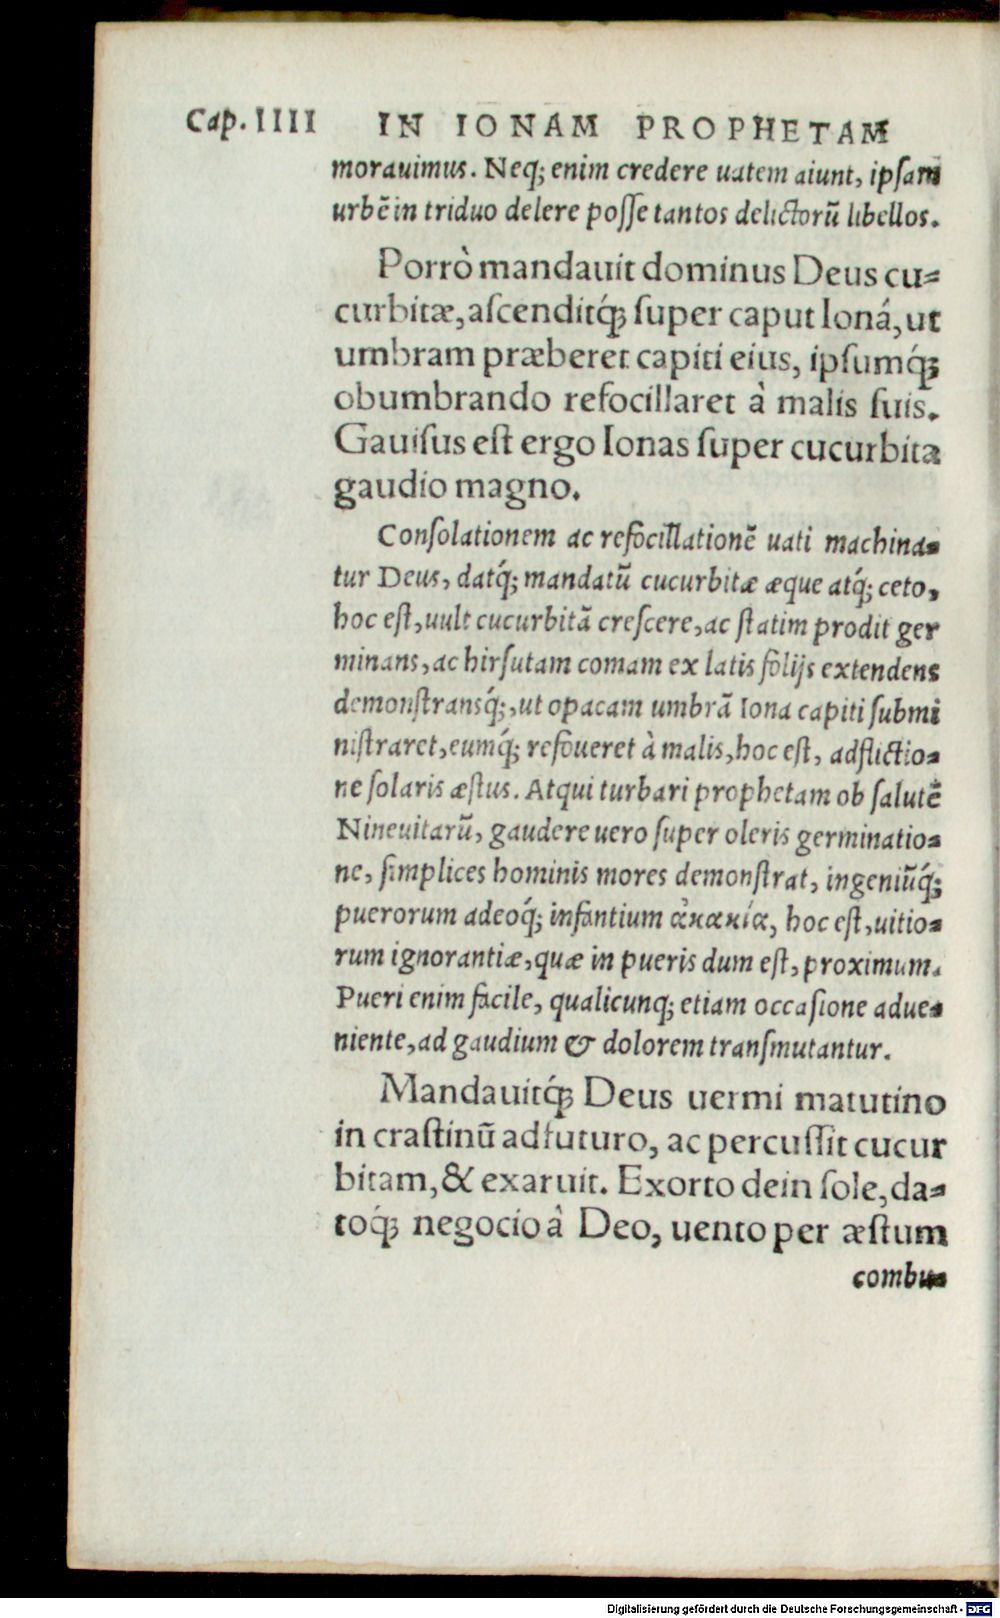 Cap. IIII IN IONAM PROPHETAM
morauimus. Neq; enim credere uatem aiunt, ipsam
urbē in triduo delere posse tantos delictorū libellos.
Porrò mandauit dominus Deus cu⸗
curbitæ, ascenditq́; super caput Ionȩ́, ut
umbram præberet capiti eius, ipsumq́;
obumbrando refocillaret à malis suis.
Gauisus est ergo Ionas super cucurbita
gaudio magno.
Consolationem ac refocillationē uati machina⸗
tur Deus, datq́; mandatū cucurbitæ æque atq́; ceto,
hoc est, uult cucurbitā crescere, ac statim prodit ger
minans, ac hirsutam comam ex latis folijs extendens
demonstransq́;, ut opacam umbrā Iona capiti submi
nistraret, eumq́; refoueret à malis, hoc est, adflictio⸗
ne solaris æstus. Atqui turbari prophetam ob salutē
Nineuitarū, gaudere uero super oleris germinatio⸗
ne, simplices hominis mores demonstrat, ingeniūq́;
puerorum adeoq́; infantium ἀκακία, hoc est, uitio⸗
rum ignorantiæ, quæ in pueris dum est, proximum.
Pueri enim facile, qualicunq; etiam occasione adue⸗
niente, ad gaudium & dolorem transmutantur.
Mandauitq́; Deus uermi matutino
in crastinū adfuturo, ac percussit cucur
bitam, & exaruit. Exorto dein sole, da⸗
toq́; negocio à Deo, uento per æstum
combu⸗
Digitalisierung gefördert durch die Deutsche Forschungsgemeinschaft - DFG